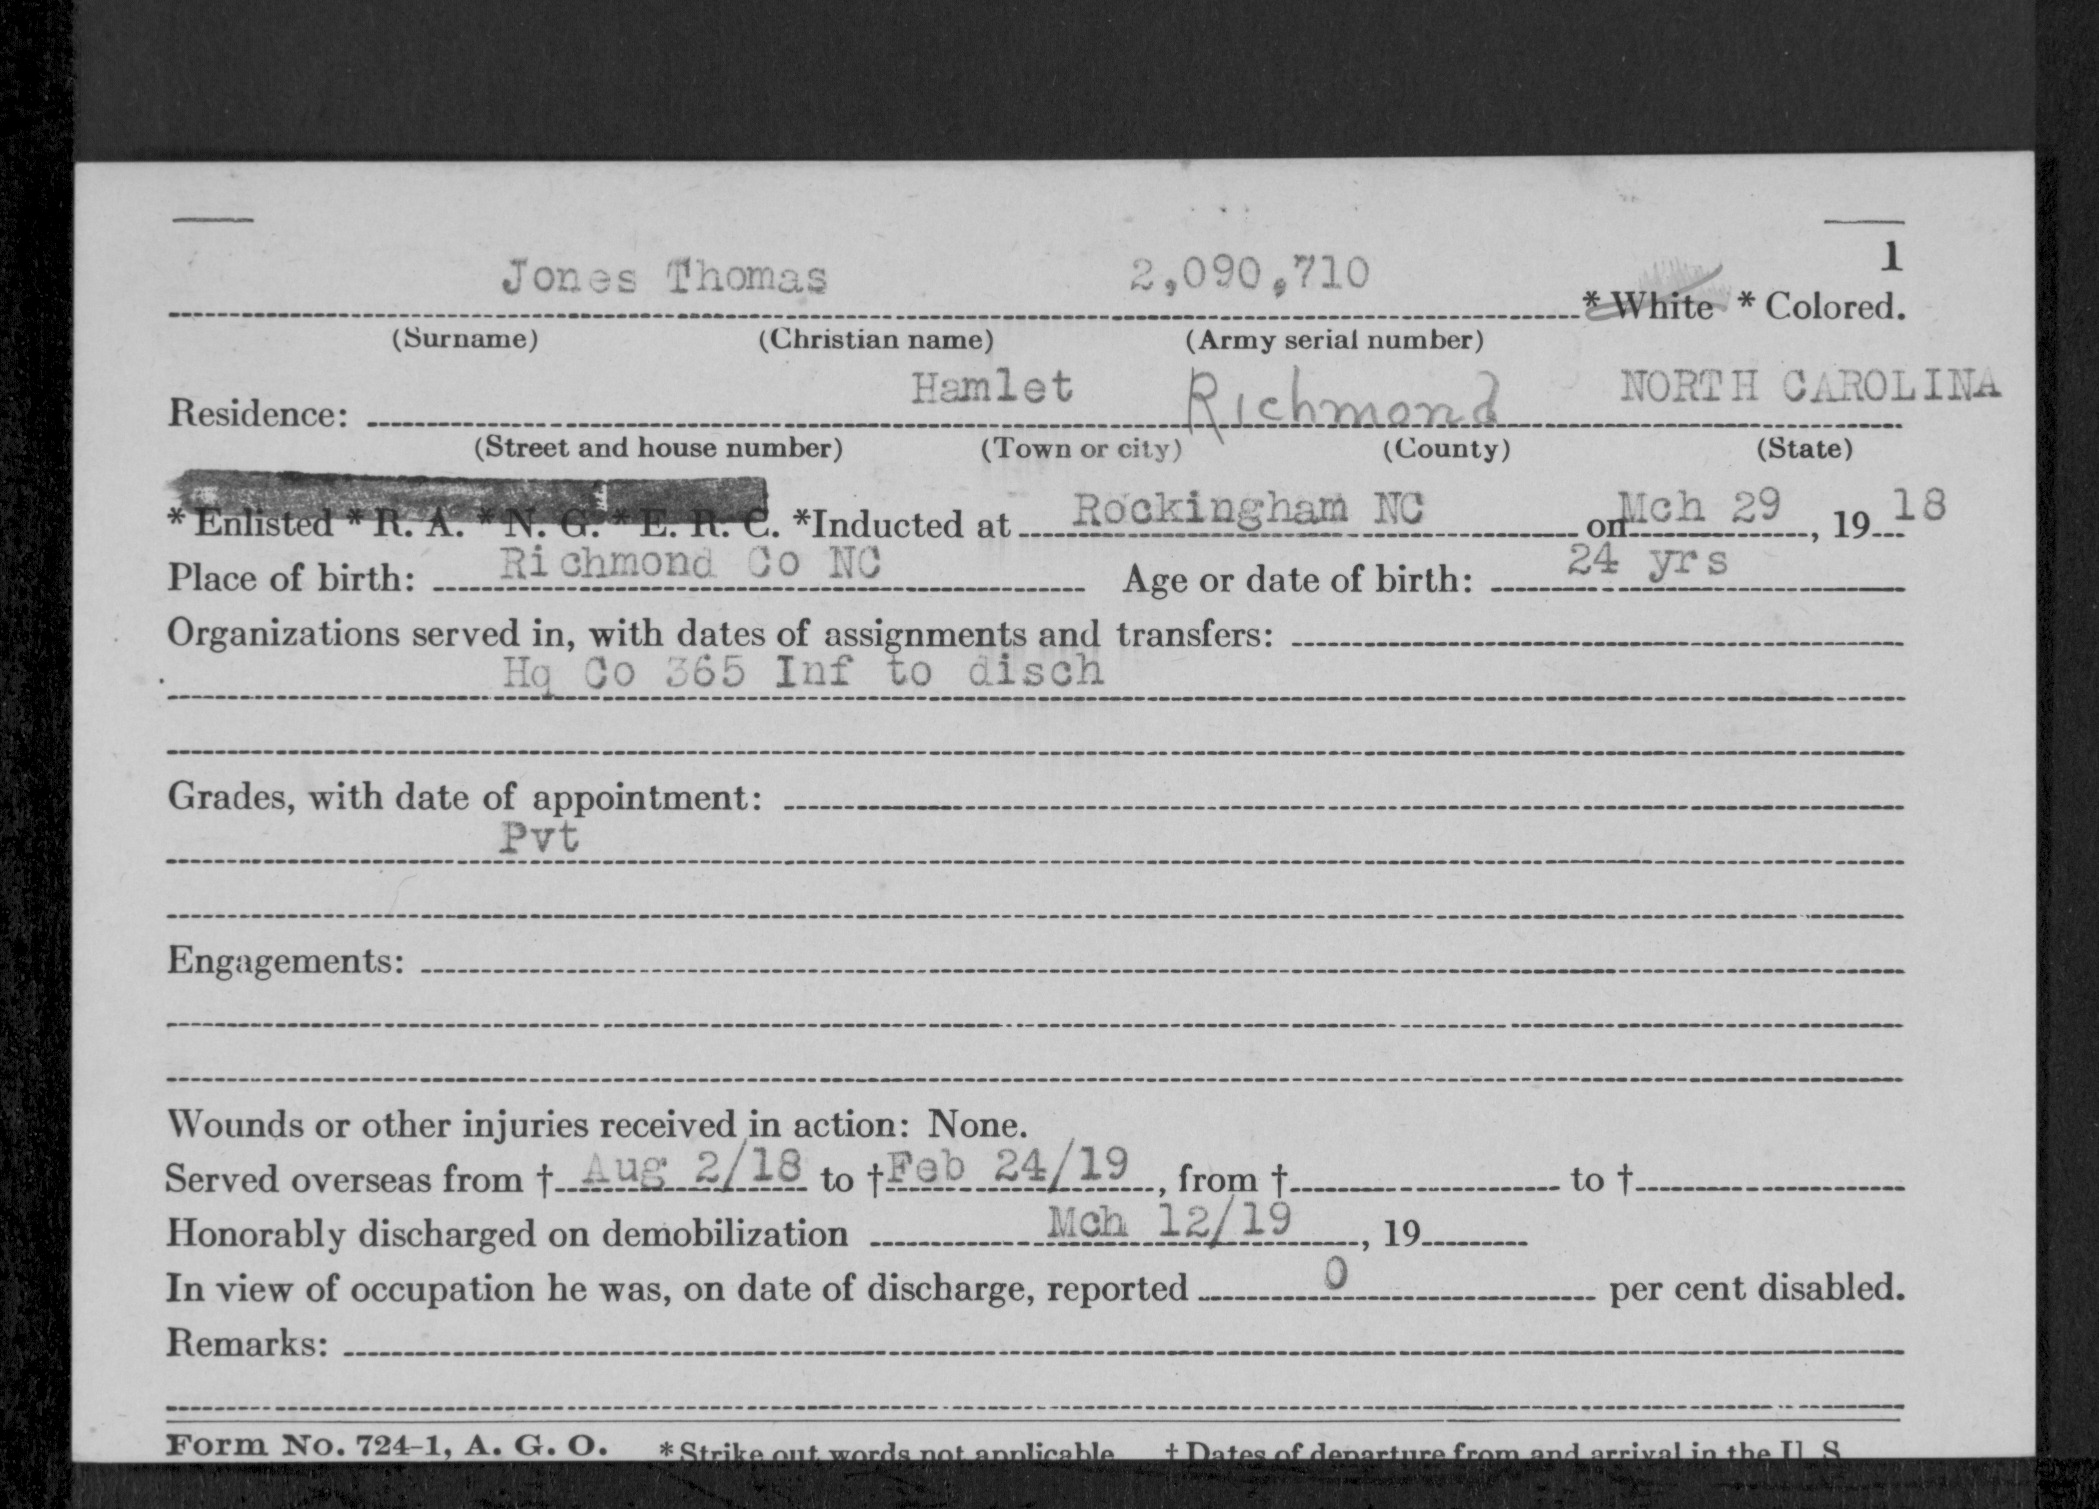 1
Jones Thomas 2,090,710 * White * Colored.
(Surname) (Christian name) (Army serial number)
Residence: Hamlet Richmond NORTH CAROLINA
(Street and house number) (Town or city) (County) (State)
* Enlisted * R. A. * N. G. * E. R. C. *Inducted at Rockingham NC on Mch 29, 19 18
Place of birth: Richmond Co NC Age or date of birth: 24 yrs
Organizations served in, with dates of assignments and transfers:
Hq Co 365 Inf to disch
Grades, with date of appointment:
Pvt
Engagements:
Wounds or other injuries received in action: None.
Served overseas from † Aug 2/18 to † Feb 24/19, from † to †
Honorably discharged on demobilization Mch 12/19, 19
In view of occupation he was, on date of discharge, reported 0 per cent disabled.
Remarks:
Form No. 724-1, A. G. O. * Strike out words not applicable † Dates of departure from and arrival in the U. S.